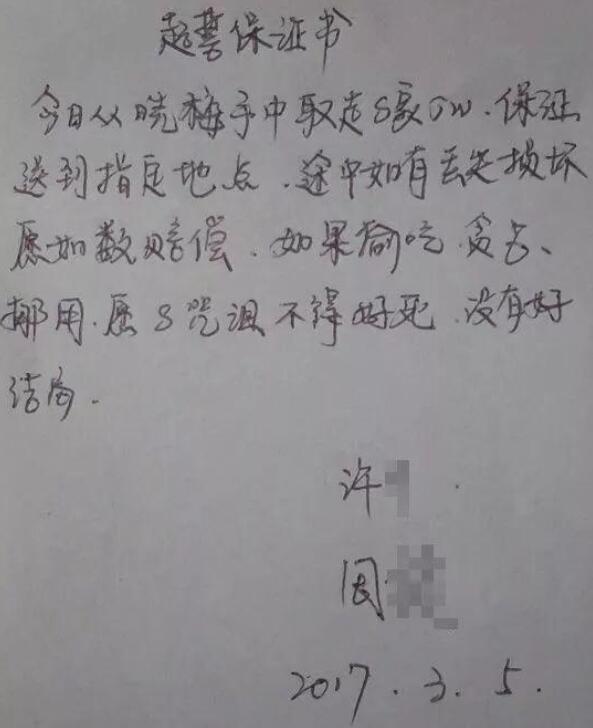 起誓保证书
今日从晓梅手中取走S家JW.保证
送到指定地点.途中如有丢失损坏
愿如数赔偿.如果偷吃.贪占、
挪用.愿S咒诅不得好死.没有好
结局.
许
周
2017.3.5.